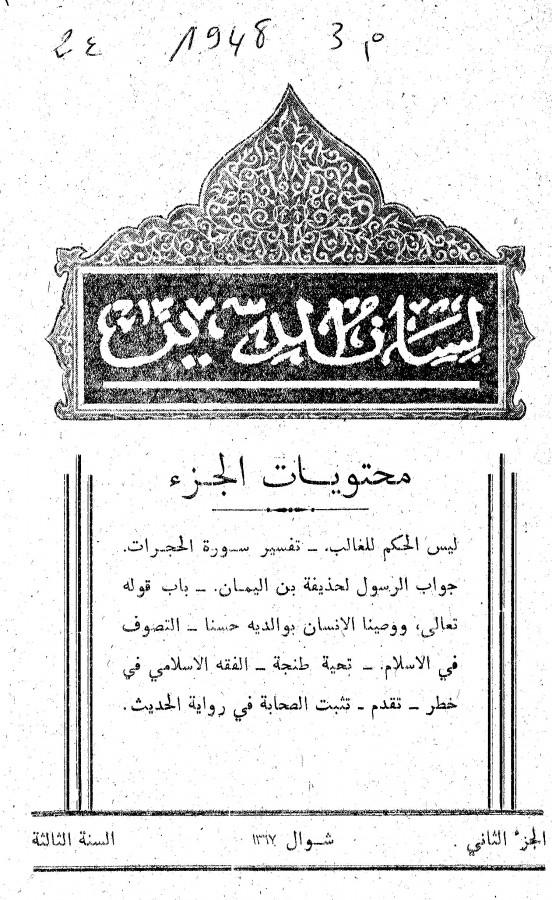 2 ع 1948 م 3
لسان الدين
محتويات الجزء
ليس الحكم للغالب. ـ تفسير سورة الحجرات.
جواب الرسول لحذيفة بن اليمان. ـ باب قوله
تعالى، ووصينا الإنسان بوالديه حسنا ـ التصوف
في الاسلام. ـ تحية طنجة ـ الفقه الاسلامي في
خطر ـ تقدم ـ تثبت الصحابة في رواية الحديث.
الجزء الثاني . شوال ١٣٦٧ السنة الثالثة